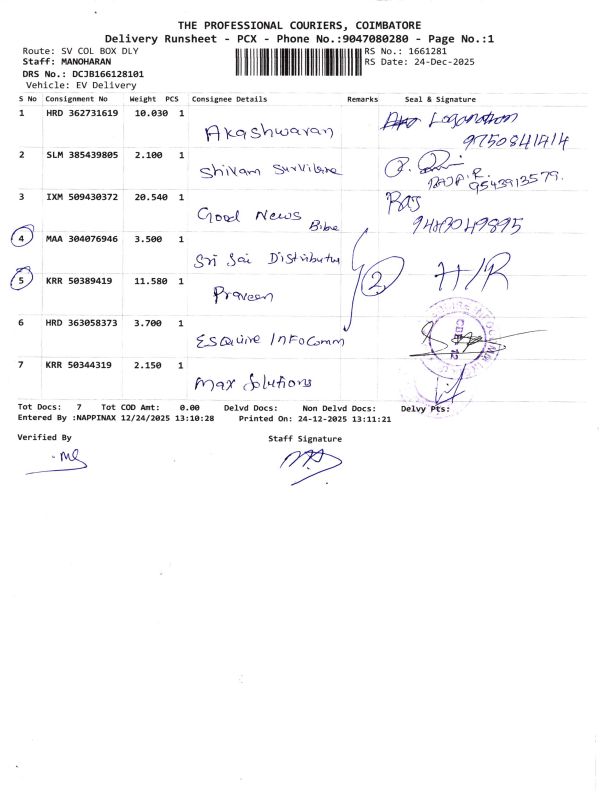 THE PROFESSIONAL COURIERS, COIMBATORE
Delivery Runsheet - PCX - Phone No.:9047080280 - Page No.:1
Route: SV COL BOX DLY RS No.: 1661281
Staff: MANOHARAN RS Date: 24-Dec-2025
DRS No.: DCJB166128101
Vehicle: EV Delivery
S No Consignment No Weight PCS Consignee Details Remarks Seal & Signature
1 HRD 362731619 10.030 1 Akashwaran Loganathan
9750841414
2 SLM 385439805 2.100 1 Shivam
9543913579.
3 IXM 509430372 20.540 1 Good News Bible Raj
4 MAA 304076946 3.500 1 Sri Sai Distributor
5 KRR 50389419 11.580 1 Praveen 2 H/R
6 HRD 363058373 3.700 1 Esquire Infocomm
7 KRR 50344319 2.150 1 Max Solutions
Tot Docs: 7 Tot COD Amt: 0.00 Delvd Docs: Non Delvd Docs: Delvy Pts:
Entered By :NAPPINAX 12/24/2025 13:10:28 Printed On: 24-12-2025 13:11:21
Verified By Staff Signature